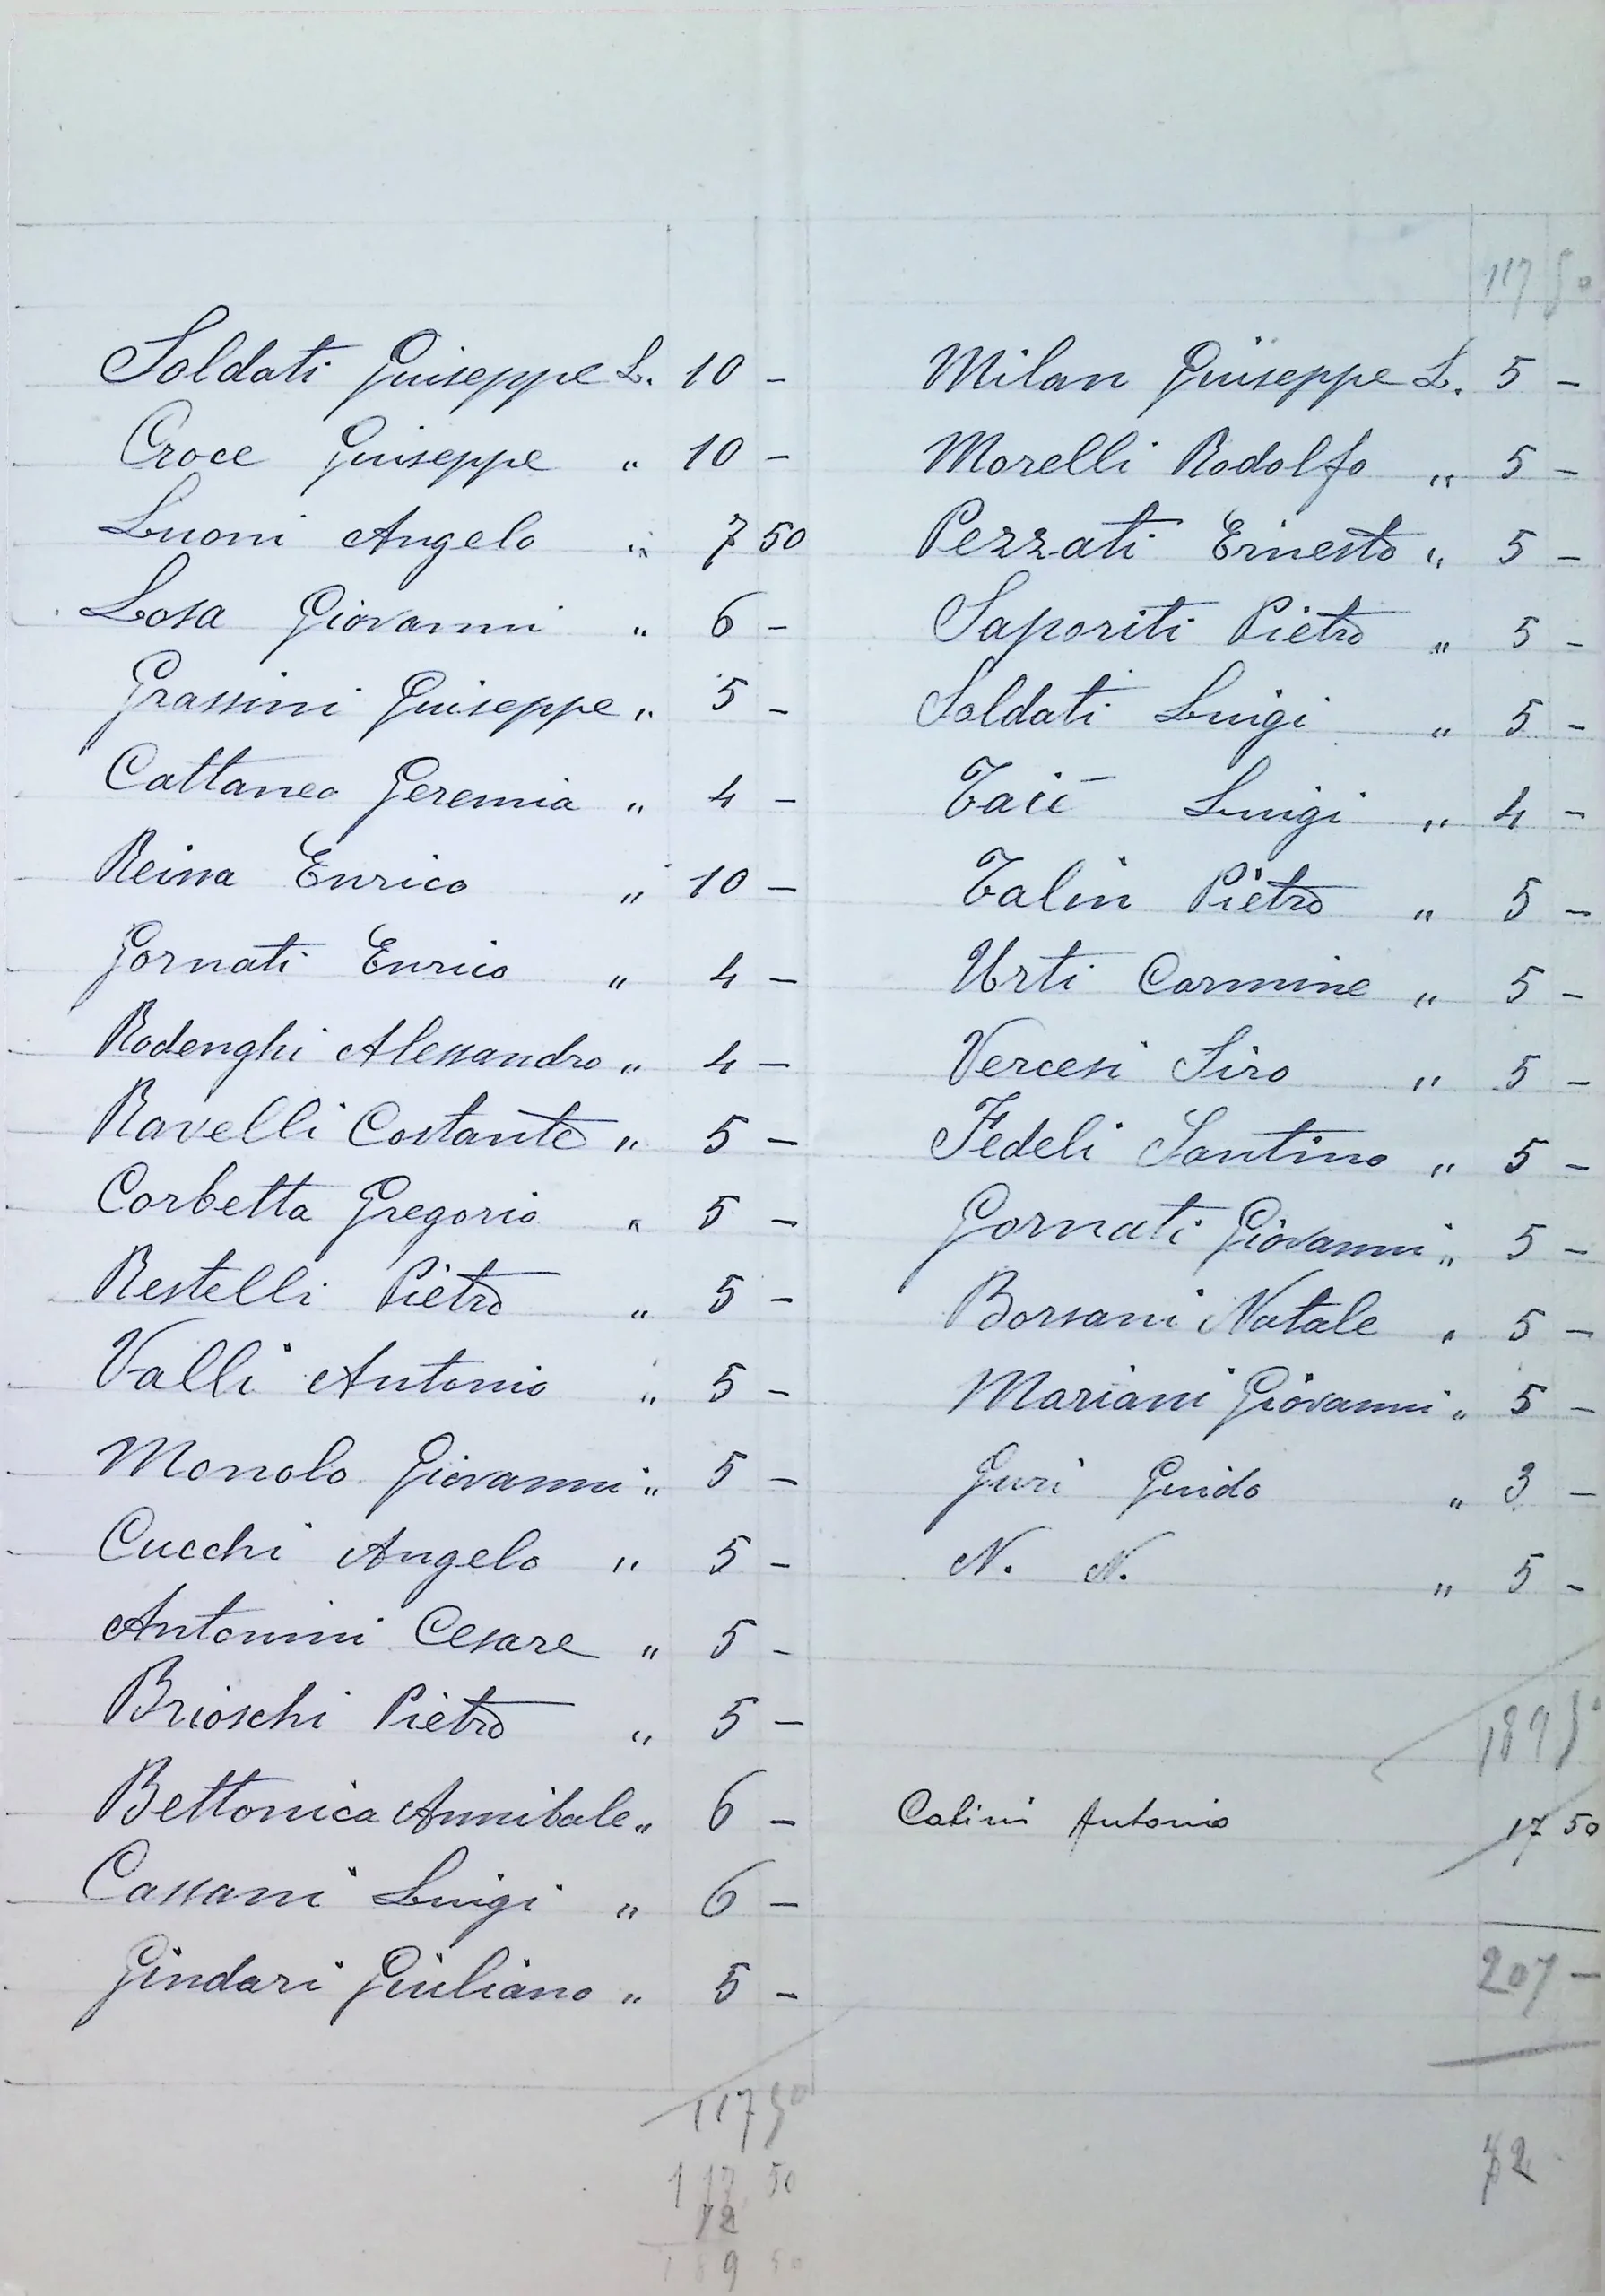 Soldati Giuseppe L. 10 -
Croce Giuseppe " 10 -
Luoni Angelo " 7 50
Losa Giovanni " 6 -
Grassini Giuseppe " 5 -
Cattaneo Geremia " 4 -
Reina Enrico " 10 -
Gornati Enrico " 4 -
Rodenghi Alessandro " 4 -
Ravelli Costante " 5 -
Corbetta Gregorio " 5 -
Restelli Pietro " 5 -
Valli Antonio " 5 -
Monolo Giovanni " 5 -
Cucchi Angelo " 5 -
Antonini Cesare " 5 -
Brioschi Pietro " 5 -
Bettonica Annibale " 6 -
Cassani Luigi " 6 -
Gindari Giuliano " 5 -
117 50
117 50
72
189 50
117 50
Milan Giuseppe L. 5 -
Morelli Rodolfo " 5 -
Pezzati Ernesto " 5 -
Saporiti Pietro " 5 -
Soldati Luigi " 5 -
Taiè Luigi " 4 -
Talin Pietro " 5 -
Urti Carmine " 5 -
Vercesi Siro " 5 -
Fedeli Santino " 5 -
Gornati Giovanni " 5 -
Borsani Natale " 5 -
Mariani Giovanni " 5 -
Guri Guido " 3 -
N. N. " 5 -
189 5
Antonio 17 50
207 -
72